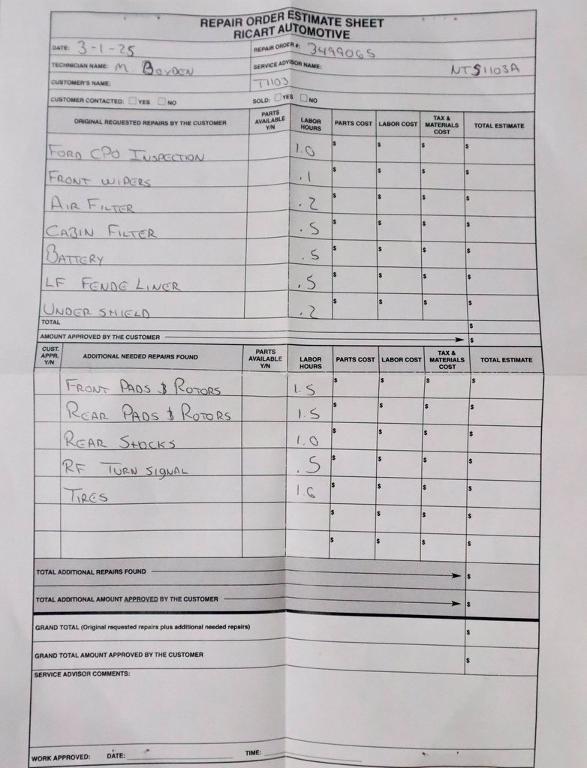 REPAIR ORDER ESTIMATE SHEET
RICART AUTOMOTIVE
DATE: 3-1-25 REPAIR ORDER #: 3499065
TECHNICIAN NAME: M. BOYDEN SERVICE ADVISOR NAME: NTS1103A
CUSTOMER'S NAME: T1103
CUSTOMER CONTACTED: YES NO SOLD: YES NO
ORIGINAL REQUESTED REPAIRS BY THE CUSTOMER PARTS AVAILABLE Y/N LABOR HOURS PARTS COST LABOR COST TAX & MATERIALS COST TOTAL ESTIMATE
FORD CPO INSPECTION 1.0 $ $ $ $
FRONT WIPERS .1 $ $ $ $
AIR FILTER .2 $ $ $ $
CABIN FILTER .5 $ $ $ $
BATTERY .5 $ $ $ $
LF FENDE LINER .5 $ $ $ $
UNDER SHIELD .2 $ $ $ $
TOTAL $
AMOUNT APPROVED BY THE CUSTOMER $
CUST. APPR. Y/N ADDITIONAL NEEDED REPAIRS FOUND PARTS AVAILABLE Y/N LABOR HOURS PARTS COST LABOR COST TAX & MATERIALS COST TOTAL ESTIMATE
FRONT PADS & ROTORS 1.5 $ $ $ $
REAR PADS & ROTORS 1.5 $ $ $ $
REAR SHOCKS 1.0 $ $ $ $
RF TURN SIGNAL .5 $ $ $ $
TIRES 1.6 $ $ $ $
$ $ $ $
$ $ $ $
TOTAL ADDITIONAL REPAIRS FOUND $
TOTAL ADDITIONAL AMOUNT APPROVED BY THE CUSTOMER $
GRAND TOTAL (Original requested repairs plus additional needed repairs) $
GRAND TOTAL AMOUNT APPROVED BY THE CUSTOMER $
SERVICE ADVISOR COMMENTS:
WORK APPROVED: DATE: TIME: